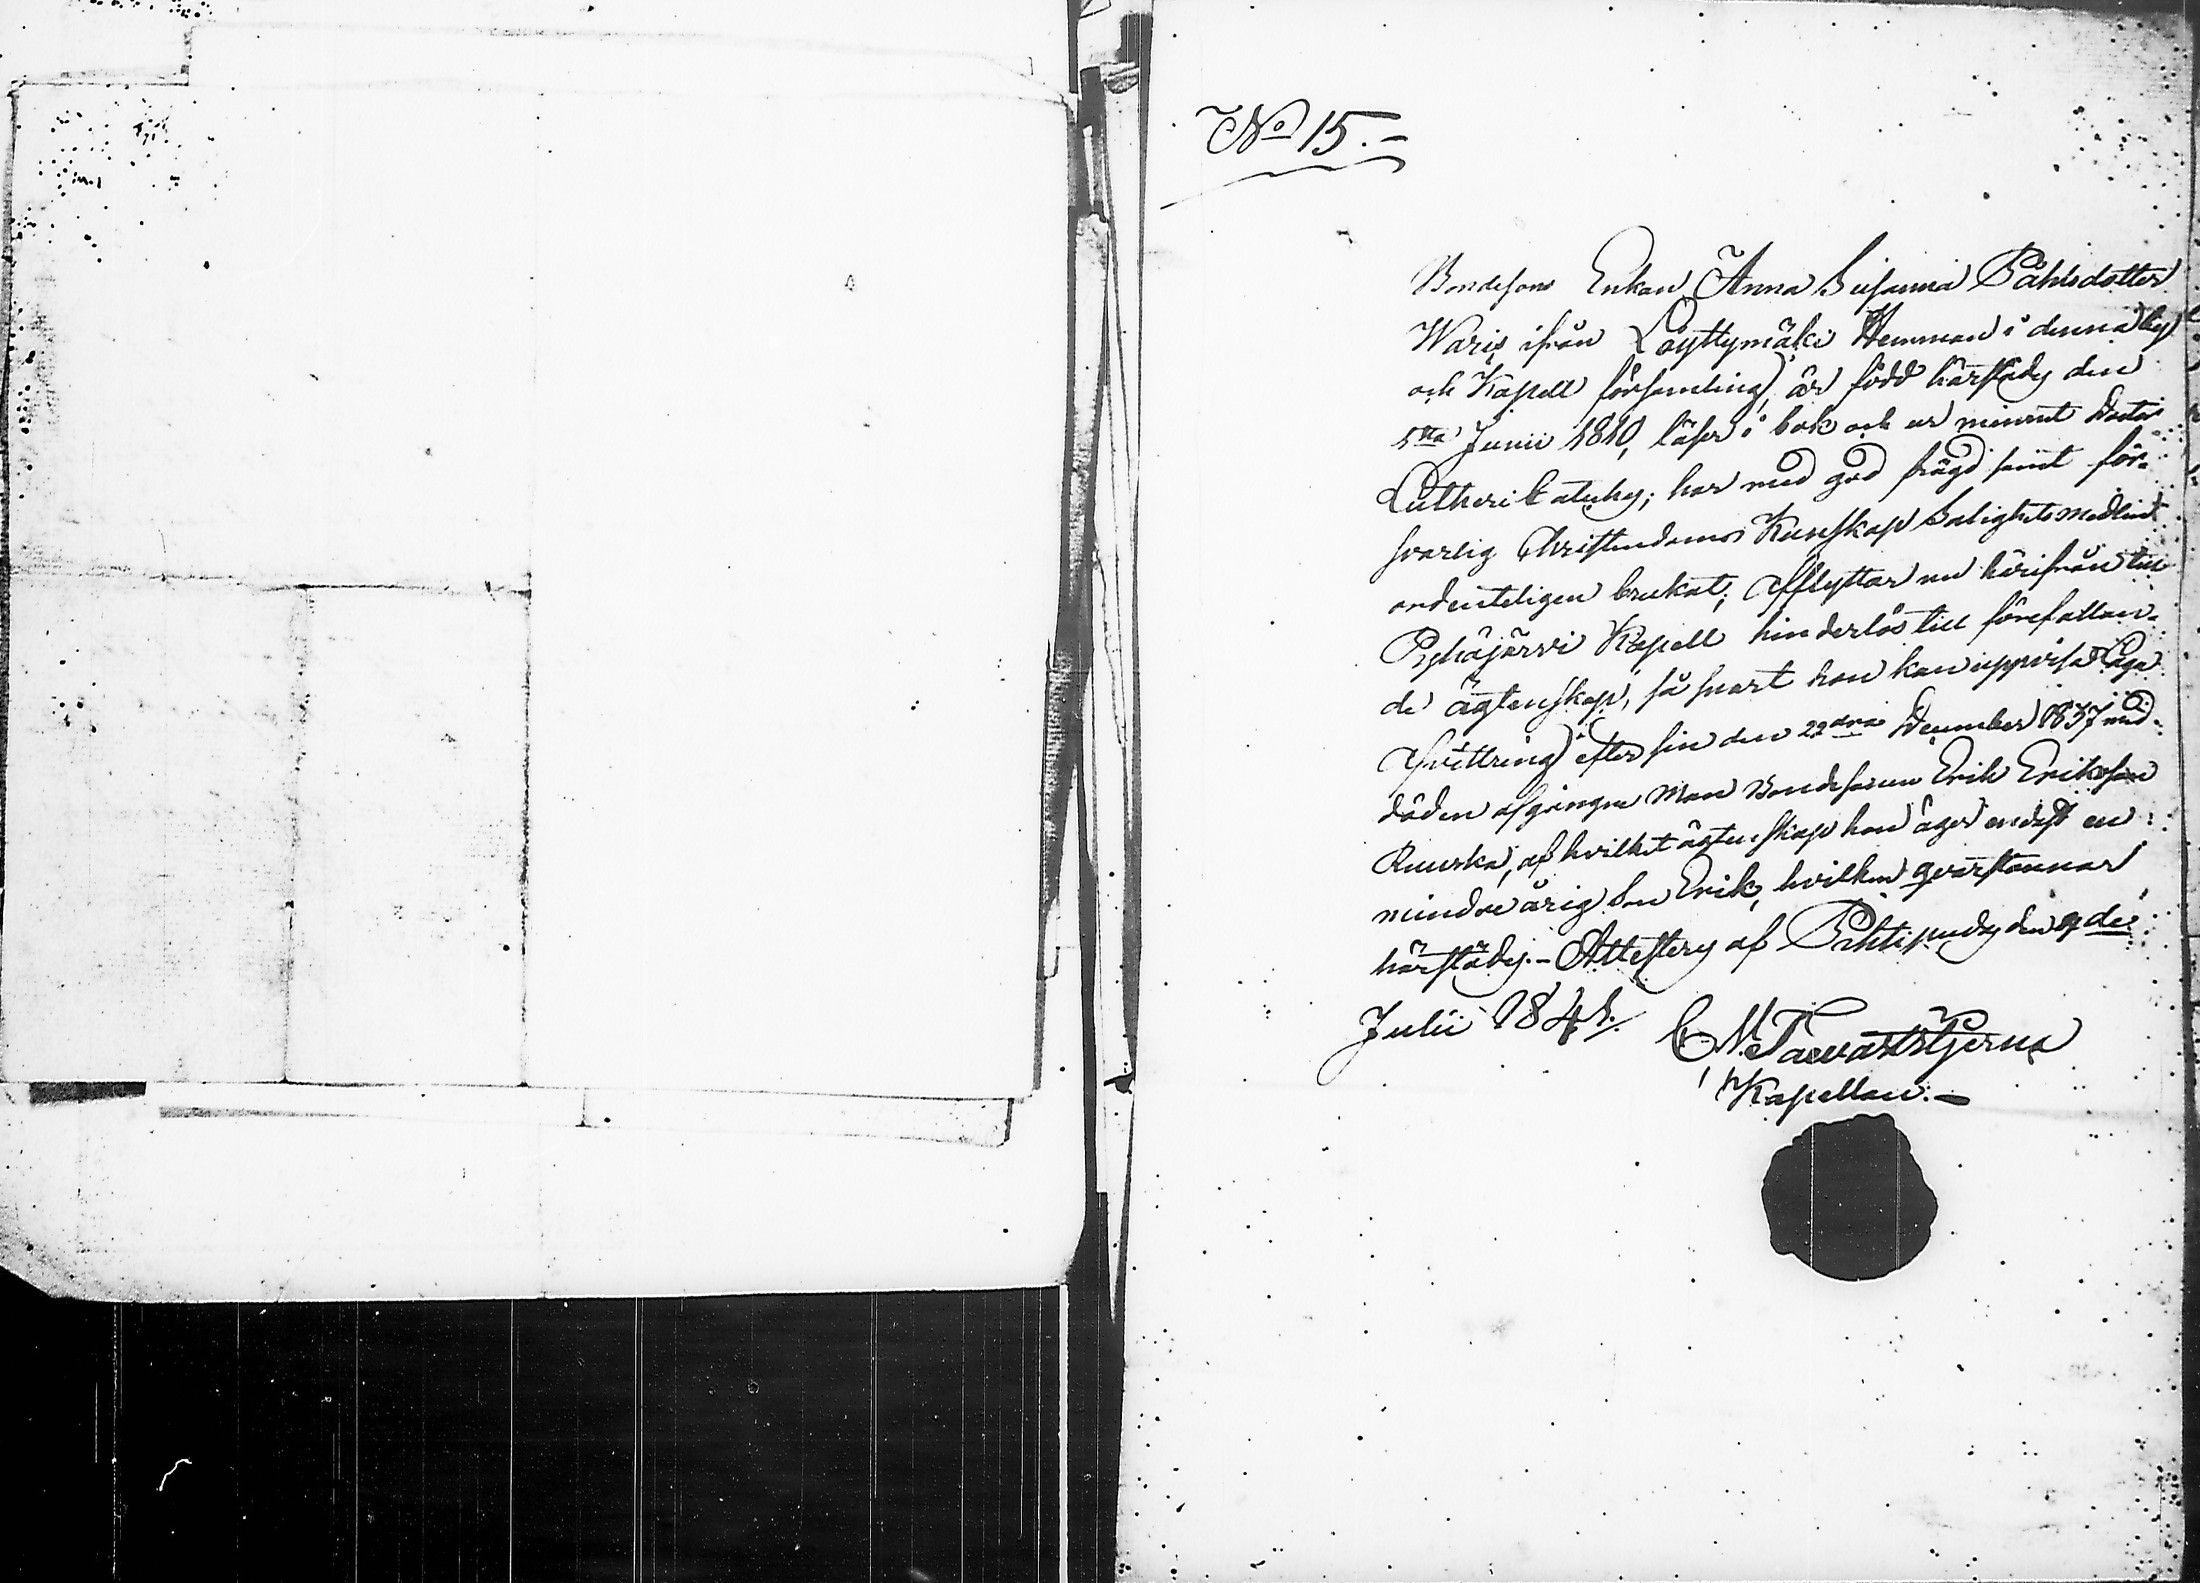 No 15.-
Bondesons Enkan Anna Susanna Påhlsdotter
Waris ifrån Löyttymäki Hemman i denna by
och Kapell församling, är född härstädes den
5ta Junii 1810, läser i bok och ur minnet Doctor
Lutheri Cateches; har med god frägd samt för-
svarlig Christendoms Kunskap Salighetsmedlen
ordenteligen brukat; Afflyttar nu härifrån till
Pyhäjärvi Kapell hinderlös till förefallan-
de ägtenskap, så snart hon kan uppvisa Laga
Afvittring efter sin den 22dra December 1837 med
döden afgångne Man Bondesonen Erik Eriksson
Ruuska, af hvilket ägtenskap hon äger endast en
mindre årig Son Erik, hvilken qvarstannar
härstädes.- Attesteras af Pihtipudas den 9de
Julii 1841.
C. M. Tawaststjerna
Kapellan.-